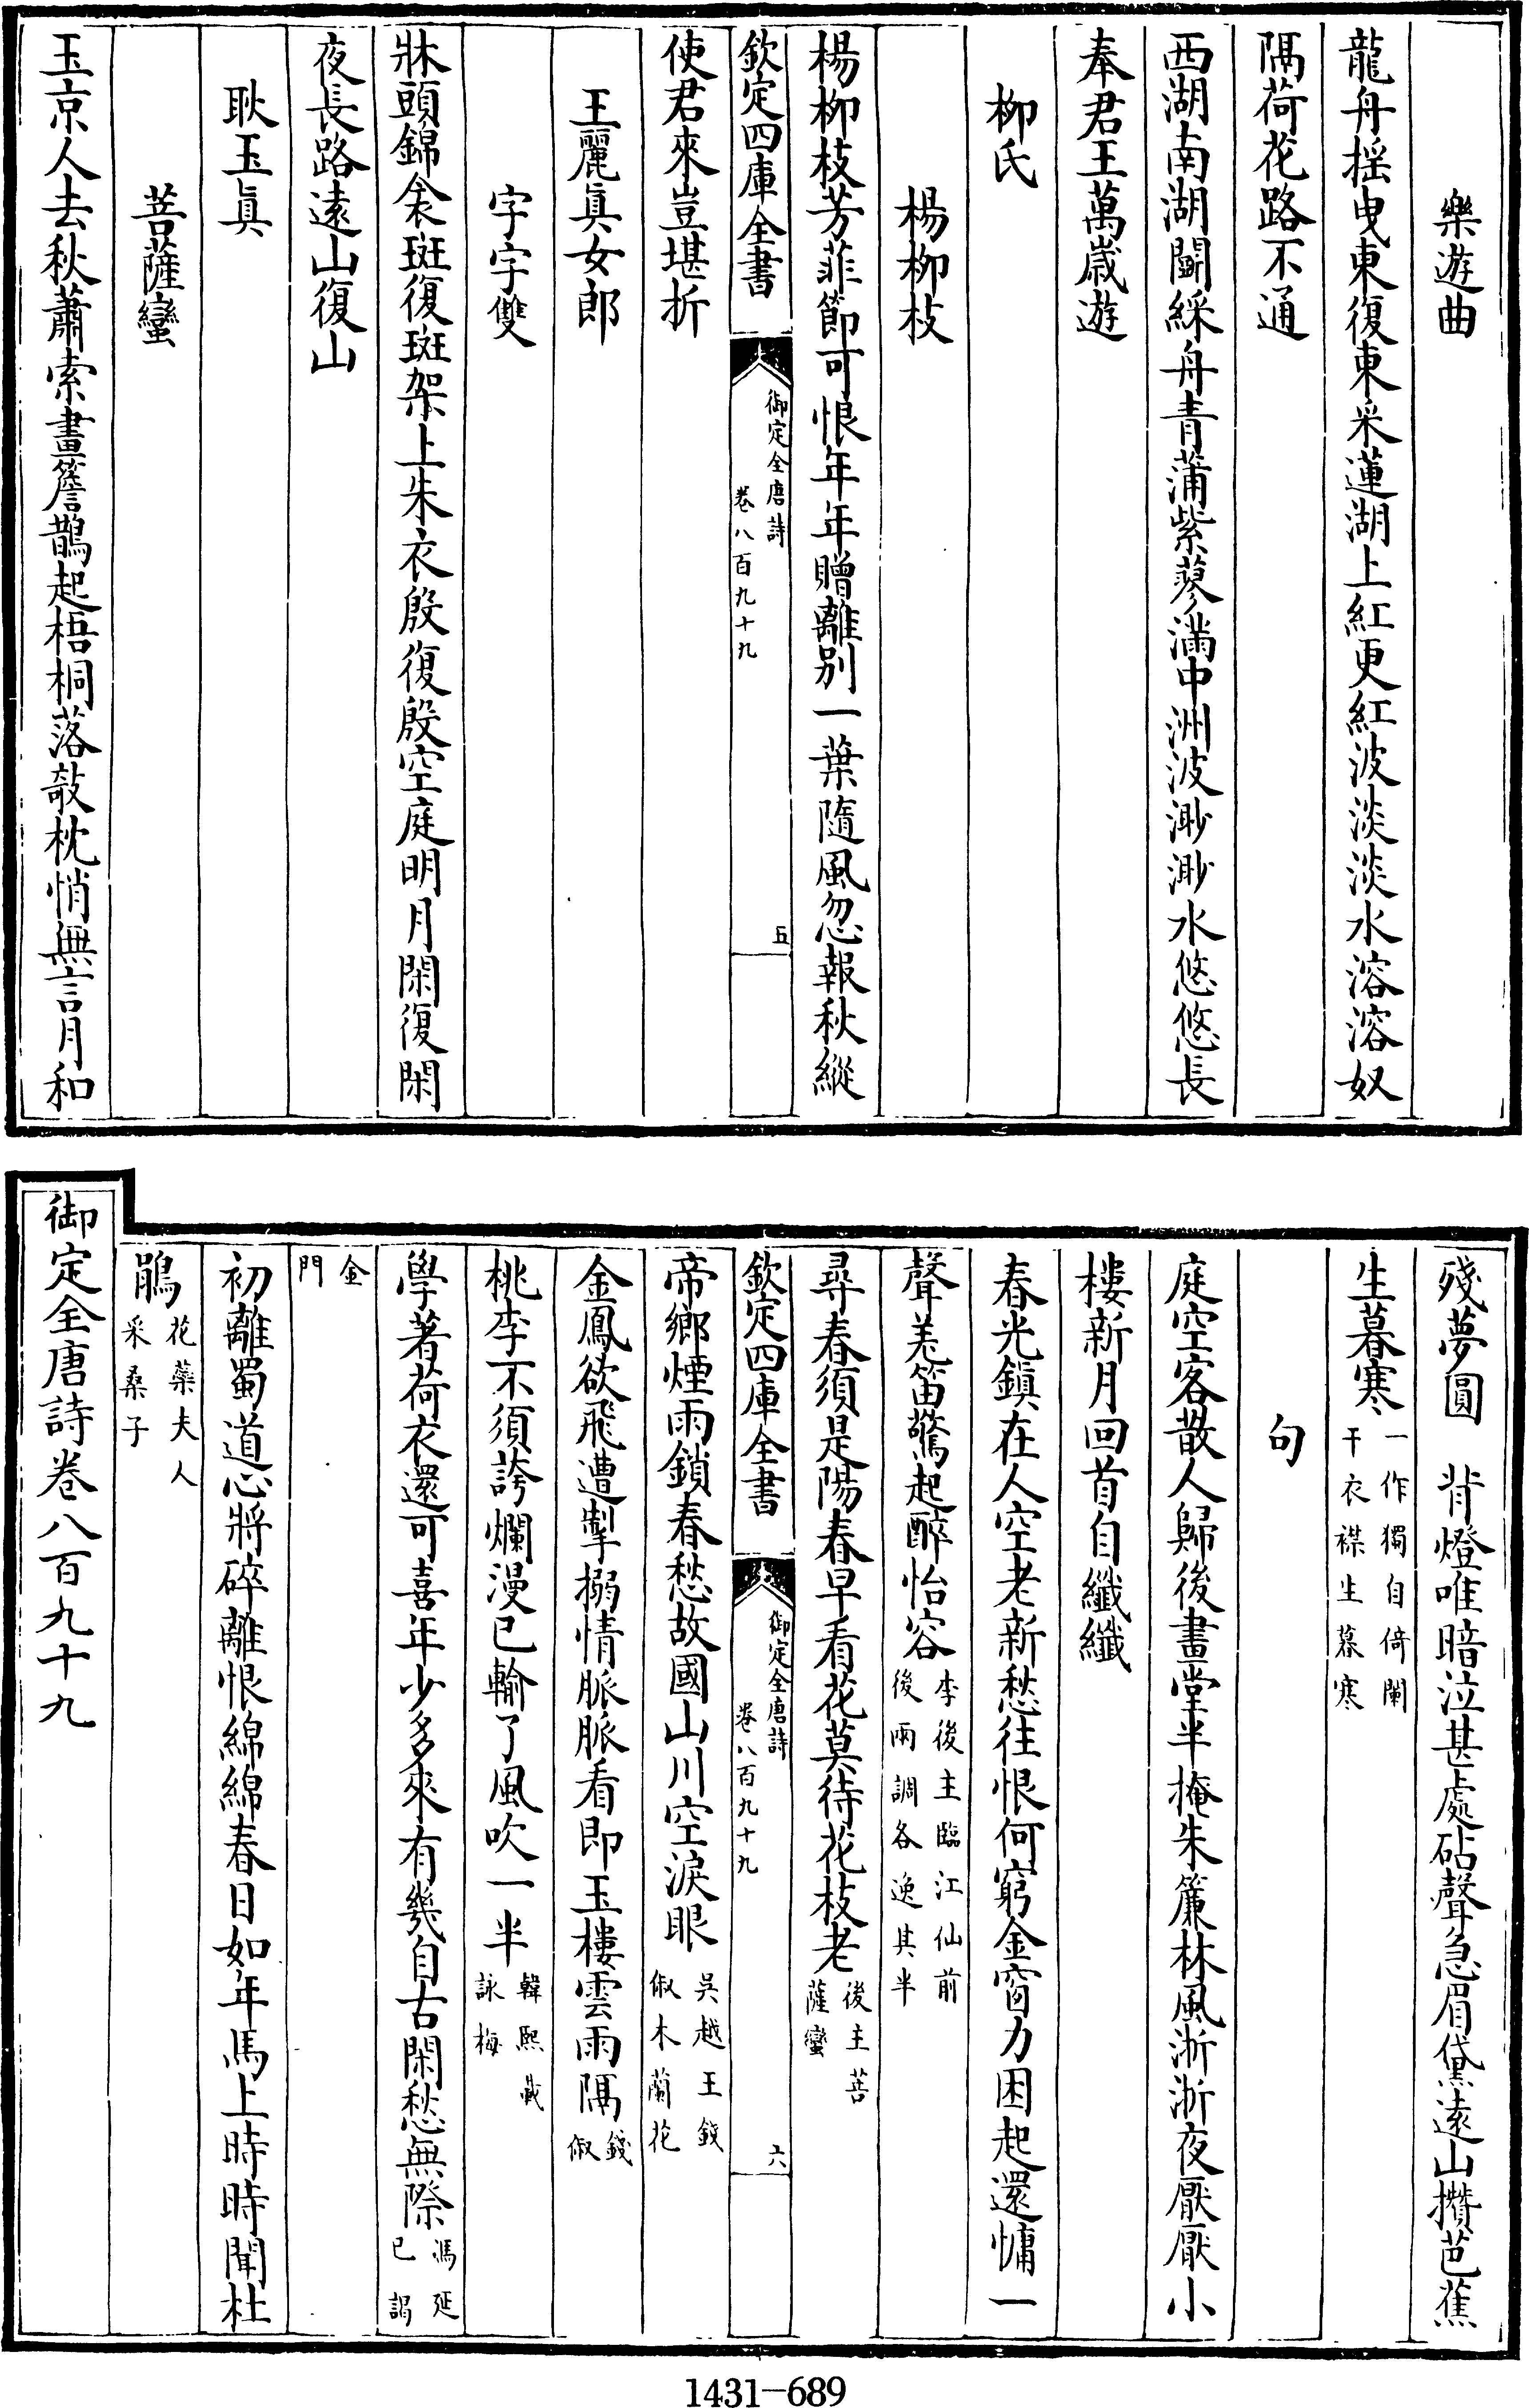 樂遊曲
龍舟揺曳東復東采蓮湖上紅更紅波淡淡水溶溶奴
隔荷花路不通
西湖南湖鬭綵舟青蒲紫蓼滿中洲波渺渺水悠悠長
奉君王萬歲遊
柳氏
楊柳枝
楊柳枝芳菲節可恨年年贈離別一葉隨風忽報秋縱
欽定四庫全書
御定全唐詩
卷八百九十九
五
使君來豈堪折
王麗真女郎
字字雙
牀頭錦衾斑復斑架上朱衣殷復殷空庭明月閑復閑
夜長路遠山復山
耿玉真
菩薩蠻
玉京人去秋蕭索畫簷鵲起梧桐落敧枕悄無言月和
殘夢圓 背燈唯暗泣甚處砧聲急眉黛遠山攢芭蕉
生暮寒一作獨自倚闌
干衣襟生暮寒
句
庭空客散人歸後畫堂半掩朱簾林風淅淅夜厭厭小
樓新月回首自纖纖
春光鎮在人空老新愁往恨何窮金窗力困起還慵一
聲羌笛驚起醉怡容李後主臨江仙前
後兩調各逸其半
尋春須是陽春早看花莫待花枝老後主菩
薩蠻
欽定四庫全書
御定全唐詩
卷八百九十九
六
帝鄉煙雨鎖春愁故國山川空淚眼吳越王錢
俶木蘭花
金鳳欲飛遭掣搦情脈脈看即玉樓雲雨隔錢
俶
桃李不須誇爛漫已輸了風吹一半韓熙載
詠梅
學著荷衣還可喜年少多來有幾自古閑愁無際馮延
已謁
金
門
初離蜀道心將碎離恨綿綿春日如年馬上時時聞杜
鵑花蘂夫人
采桑子
御定全唐詩卷八百九十九
1431—689